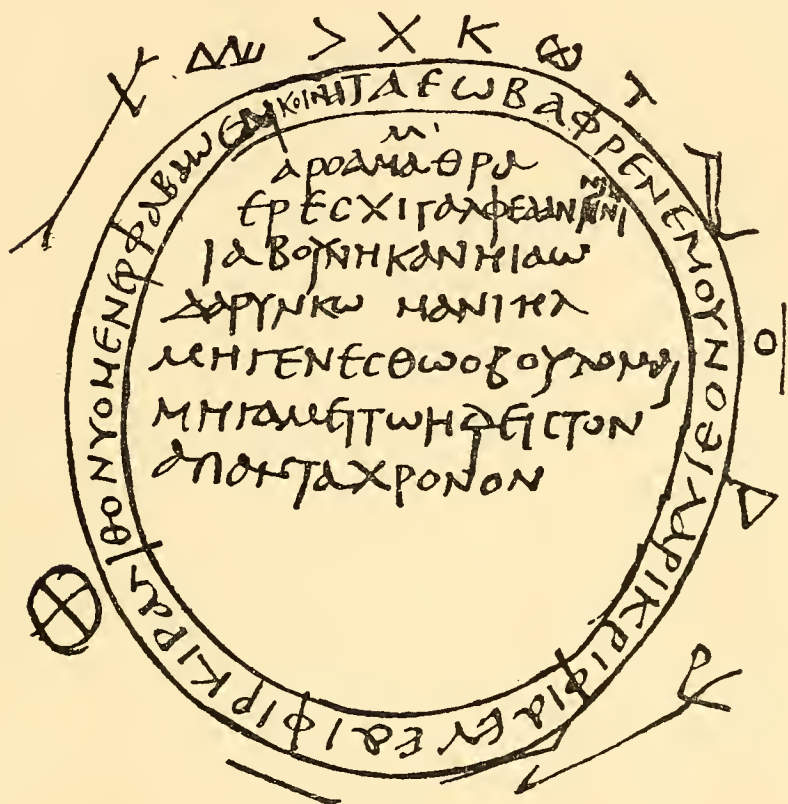 ΚΟΙΝΑ ΤΑΕΩΒΑΦΡΕΝΕΜΟΥΝΟΘΕΙΛΑΡΙΚΡΙΦΙΑΕΥΕΑΙΦΙΡΚΙΡΑΛΙΘΟΝΥΟΜΕΝΕΡΦΑΒΑΩΕ
ΑΡΟΑΜΑΘΡΑ
ΕΡΕCΧΙΓΑΛΦΕΔΑΝ
ΙΑΒΟΥΝΗΚΑΝΗΙΑΩ
ΔΑΡΥΝΚΩ ΜΑΝΙΗΛ
ΜΗΓΕΝΕCΘΩΟΒΟΥΛΟΜΑΙ
ΜΗΓΑΜΕΙΤΩΗΔΕΙCΤΟΝ
ΑΠΑΝΤΑΧΡΟΝΟΝ